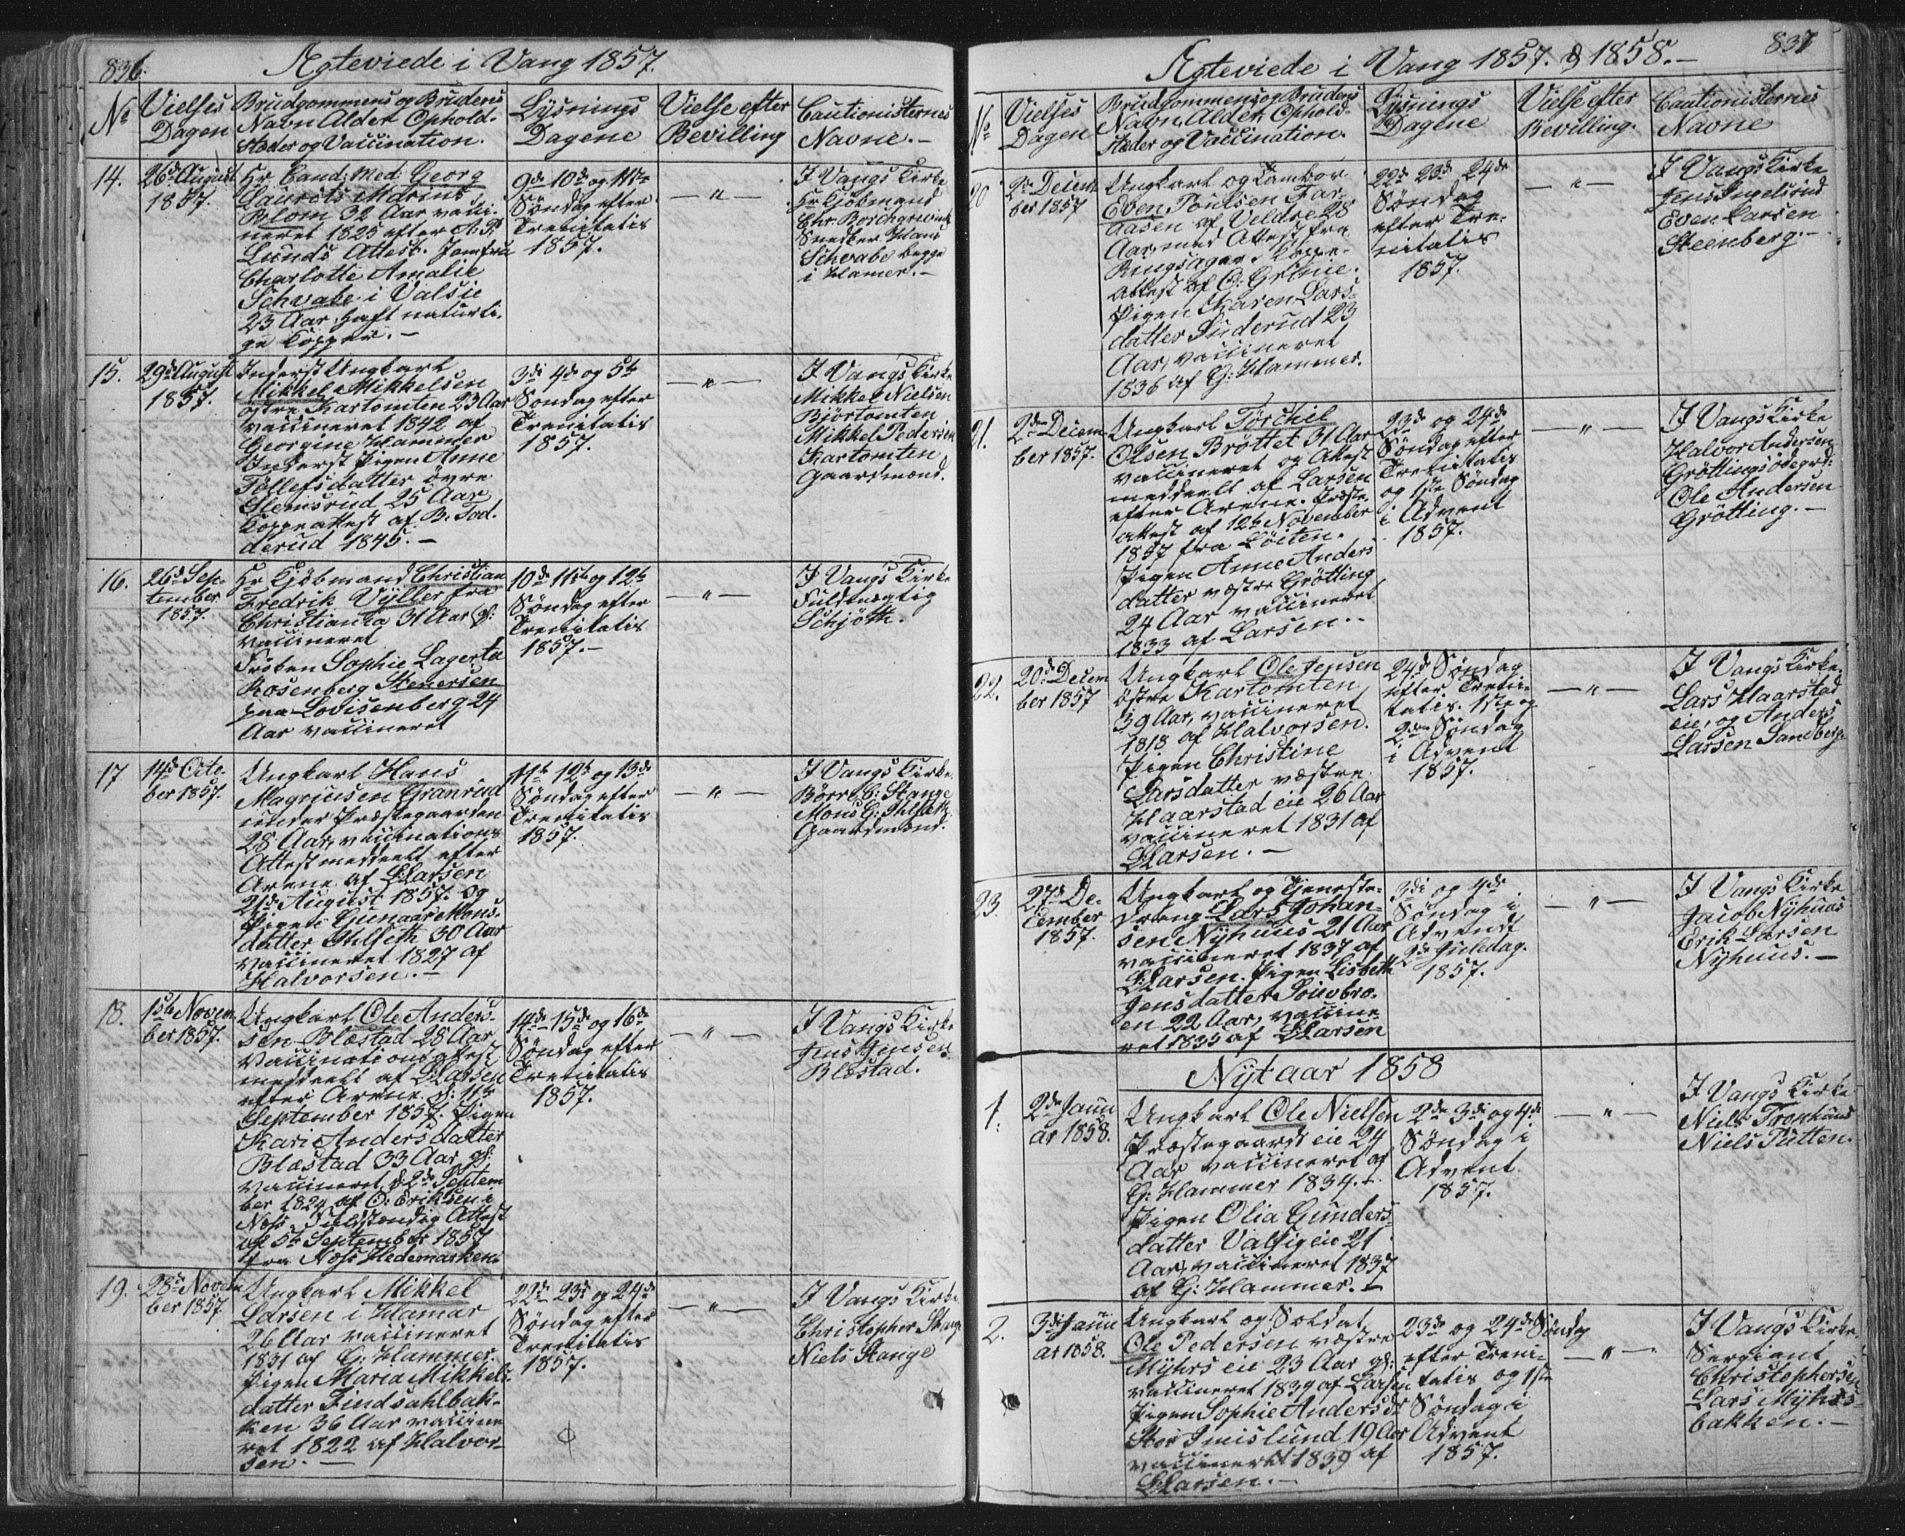 836.
Ægteviede i Vang 1857.
No
Vielses Dagen
Brudgommens og Brudens
Navn Alder Ophold-
stæder og Vaccination.
Lysnings
Dagene
Vielse efter
Bevilling
Cautionisternes
Navne.
14.
26de August
1857.
Hr Cand: med: Georg
Laurits Marius
Blom 32 Aar vacci-
neret 1825 efter
Lunds Attest. Jomfru
Charlotte Amalie
Schvabe i Valsie
23 Aar, haft naturli-
ge Kopper. —
9de 10de og 11te
Søndag efter
Trenitatis
1857.
— " —
I Vangs Kirke
Hr Kjøbmand
Chr. Borchgrevink
Snedker Hans
Schvabe begge
i Hamer. —
15.
29de August
1857.
Inderst Ungkarl
Mikkel Mikkelsen
østre Kartomten 23 Aar
vaccineret 1842 af
Georgine Hammer
Inderst Pigen Anne
Tollefsdatter øvre
Glemsrud 25 Aar
Koppeattest af B. Tod-
derud 1845. —
3die 4de og 5te
Søndag efter
Trenitatis
1857.
— " —
I Vangs Kirke
Mikkel Nielsen
Bjørtomten
Mikkel Pedersen
Kartomten
Gaardmænd.
16.
26de Sep-
tember
1857.
Hr Kjøbmand Christian
Fredrik Vyller fra
Christiania 31 Aar gl:
vaccineret
Frøken Sophie Lagerta
Rosenberg Stenersen
paa Lovisenberg 24
Aar vaccineret
10de 11te og 12te
Søndag efter
Trenitatis
1857. —
— " —
I Vangs Kirke
Fuldmægtig
Schjøtt.
17
14de Octo-
ber 1857.
Ungkarl Hans
Magnusen Granrud
under Præstegaarden
28 Aar, vaccinations
Attest meddeelt efter
Arene af LLarsen
21de August 1857. og
Pigen Gunaar Mons-
datter Ihlseth 30 Aar
vaccineret 1827 af
Halvorsen. —
11te 12te og 13de
Søndag efter
Trenitatis
1857.
— " —
I Vangs Kirke
Børre C: Stange
Mons G: Ihlseth
Gaardmænd.
18.
1ste Novem-
ber 1857.
Ungkarl Ole Anders-
sen Blæstad 28 Aar
Vaccinationsattest
meddeelt af LLarsen
efter Arene d: 11te
September 1857. Pigen
Kari Andersdatter
Blæstad 33 Aar gl:
vaccineret d 2de Septem-
ber 1824 af O: Eriksen i
Næs. Fuldstændig Attest
af 5te September 1857
fra Næs Hedemarken.
14de 15de og 16de
Søndag efter
Trenitatis
1857.
— " —
I Vangs Kirke
Jens Jensen
Blæstad.
19.
28de Novem-
ber 1857.
Ungkarl Mikkel
Larsen i Hamar
26 Aar vaccineret
1831 af G: Hammer.
Pigen Maria Mikkels-
datter Findsahlbak-
ken 36 Aar vaccine
ret 1822 af Halvor-
sen. —
22de 23de og 24de
Søndag efter
Trenitatis
1857.
— " —
I Vangs Kirke
Christopher Stange
Niels Stange
837
Ægteviede i Vang 1857. & 1858. —
No
Vielses
Dagen
Brudgommens og Brudens
Navn, Alder, Ophold-
stæder og Vaccination.
Lysnings
Dagene
Vielse efter
Bevilling.
Cautionisternes
Navne
20
2de Decem-
ber 1857
Ungkarl og Tambor
Even Poulsen Far-
aasen af Veldre 28
Aar, med Attest fra
Ringsager. Koppe-
attest af O: Grønne.
Pigen Karen Lars-
datter Suderud 23
Aar, vaccineret
1836 af G: Hammer.
22de 23de 24de
Søndag
efter Tre-
nitatis
1857.
— " —
I Vangs Kirke
Jens Ingelsrud
Even Larsen
Steenberg. —
21.
2de Decem
ber 1857.
Ungkarl Torchel
Olsen Brøttet 31 Aar
vaccineret og Attest
meddeelt af Larsen
efter Arene. Præste-
attest af 12te November
1857 fra Løiten.
Pigen Anne Anders
datter væstre Grøtting
24 Aar vaccineret
1833 af Larsen. —
23de og 24de
Søndag efter
Trenitatis
og 1ste Søndag
i Advent
1857.
— " —
I Vangs Kirke
Halvor Andersen
Grøttingsødegrd:
Ole Andersen
Grøtting. —
22.
20de Decem
ber 1857
Ungkarl Ole Jensen
østre Kartomten
39 Aar, vaccineret
1818 af Halvorsen.
Pigen Christine
Larsdatter væstre
Haarstad eie 26 Aar
vaccineret 1831 af
LLarsen. —
24de Søndag
efter Treni-
tatis. 1ste og
2den Søndag
i Advent
1857.
— " —
I Vangs Kirke
Lars Haarstad
eie, og Anders
Larsen Sandberg.
23.
27de De-
cember
1857.
Ungkarl og Tjeneste-
dreng Lars Johan-
sen Nyhuus 21 Aar
vaccineret 1837 af
LLarsen. Pigen Lisbeth
Jensdatter Soievbro-
en 22 Aar, vaccine-
ret 1835 af LLarsen
3die og 4de
Søndag i
Advent
2de Juledag.
1857.
— " —
I Vangs Kirke
Jacob Nyhuus
Erik Larsen
Nyhuus. —
Nytaar 1858
1.
2den Janu
ar 1858.
Ungkarl Ole Nielsen
Præstegaards eie 24
Aar vaccineret af
G: Hammer 1834. —
Pigen Olia Gunders-
datter Valsig eie 21
Aar, vaccineret 1837
af G: Hammer. —
2de 3die og 4de
Søndag i
Advent
1857.
— " —
I Vangs Kirke
Niels Tronhuus
Niels Putten.
2.
3die Janu
ar 1858.
Ungkarl og Soldat
Ole Pedersen væstre
Myhrs eie 23 Aar gl:
vaccineret 1839 af Larsen
Pigen Sophie Andersdr
Stor Imislund 19 Aar
vaccineret 1839 af
LLarsen. —
23de og 24de Søndag
efter Treni-
tatis og 1ste
Søndag i
Advent
1857.
— " —
I Vangs Kirke
Sergiant
Christophersen
Lars Myhrs-
bakken. —